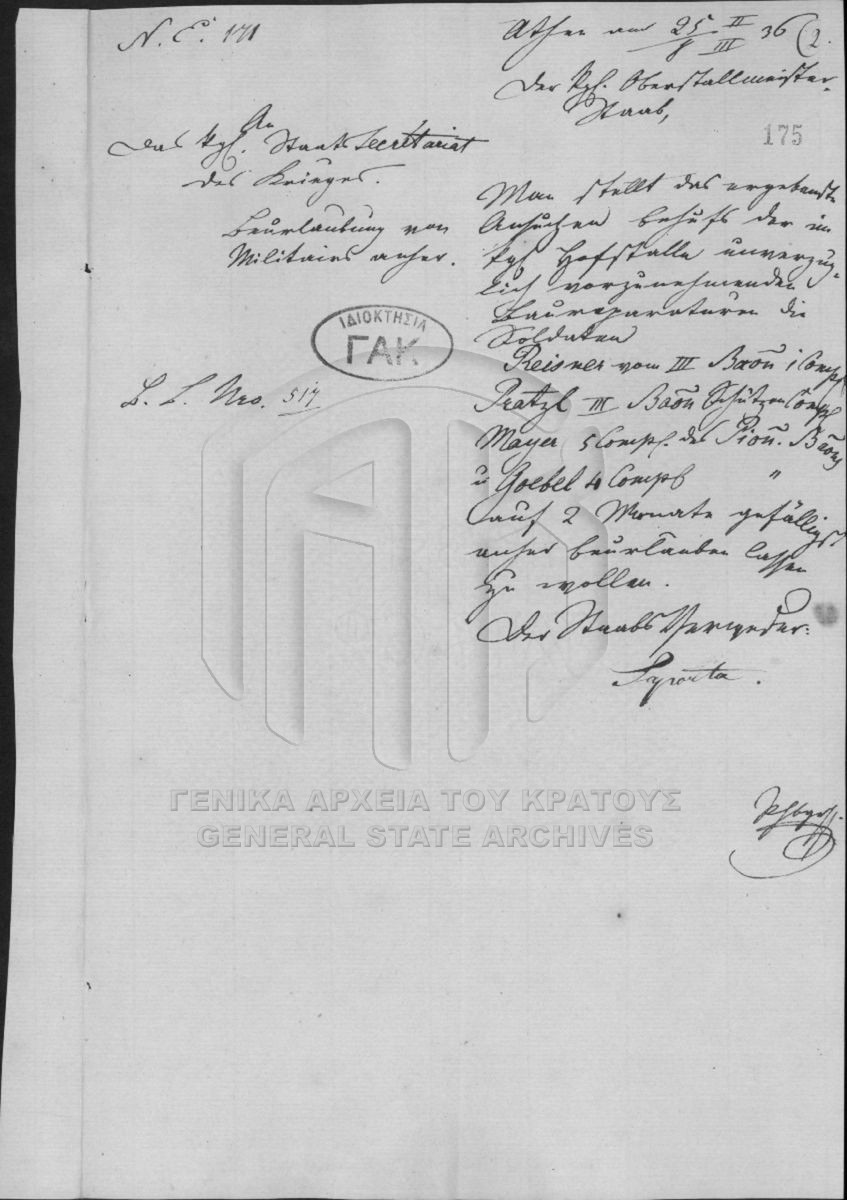 N. E. 171
Athen am 25 II / 8 III 36 (2.
Der Kgl. Oberstallmeister-
Staab,
175
An
das Kgl. Staats Secretariat
des Krieges.
Beurlaubung von
Militairs anher.
B. L. Nro. 517
Man stellt das ergebenste
Ansuchen behufs der im
Kgl Hofstalle unverzüg-
lich vorzunehmenden
Baureparaturen die
Soldaten
Reisner vom III Baon 1 Comp
Pratzl III Baon Schützen Comp
Mayer 5 Comp. des Pion. Baons
u Goebel 4 Comp "
auf 2 Monate gefälligst
anher beurlauben lassen
zu wollen.
Der Staabs Verweser:
ΙΔΙΟΚΤΗΣΙΑ
ΓΑΚ
ΓΕΝΙΚΑ ΑΡΧΕΙΑ ΤΟΥ ΚΡΑΤΟΥΣ
GENERAL STATE ARCHIVES